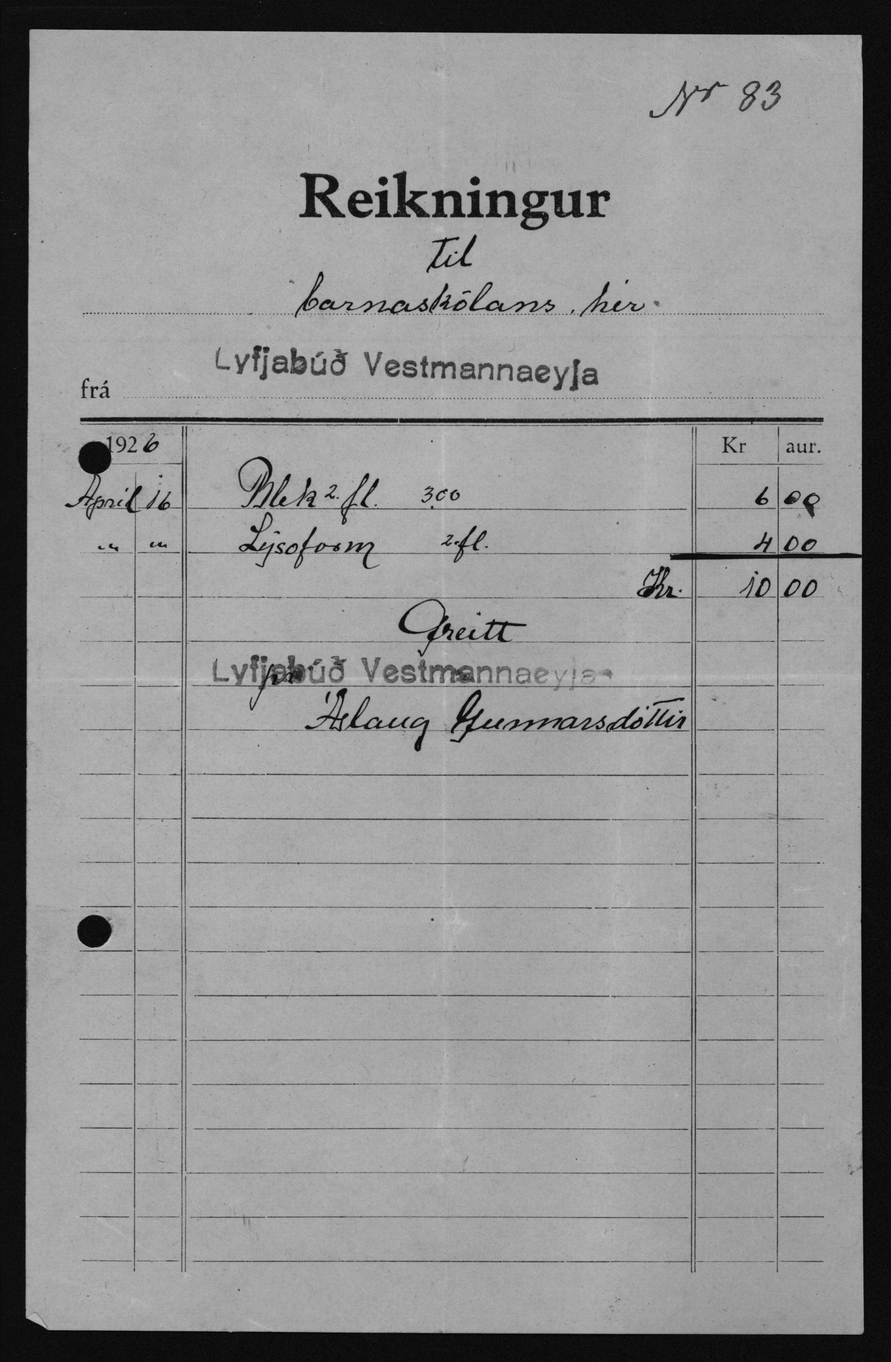 Nr 83
Reikningur
til
barnaskólans hér
Lyfjabúð Vestmannaeyja
frá
1926 Kr aur.
April 16 Blek 2 fl. 300 6 00
" " Lysoform 2 fl. 4 00
Kr. 10 00
Greitt
Lyfjabúð Vestmannaeyja
Áslaug Gunnarsdóttir